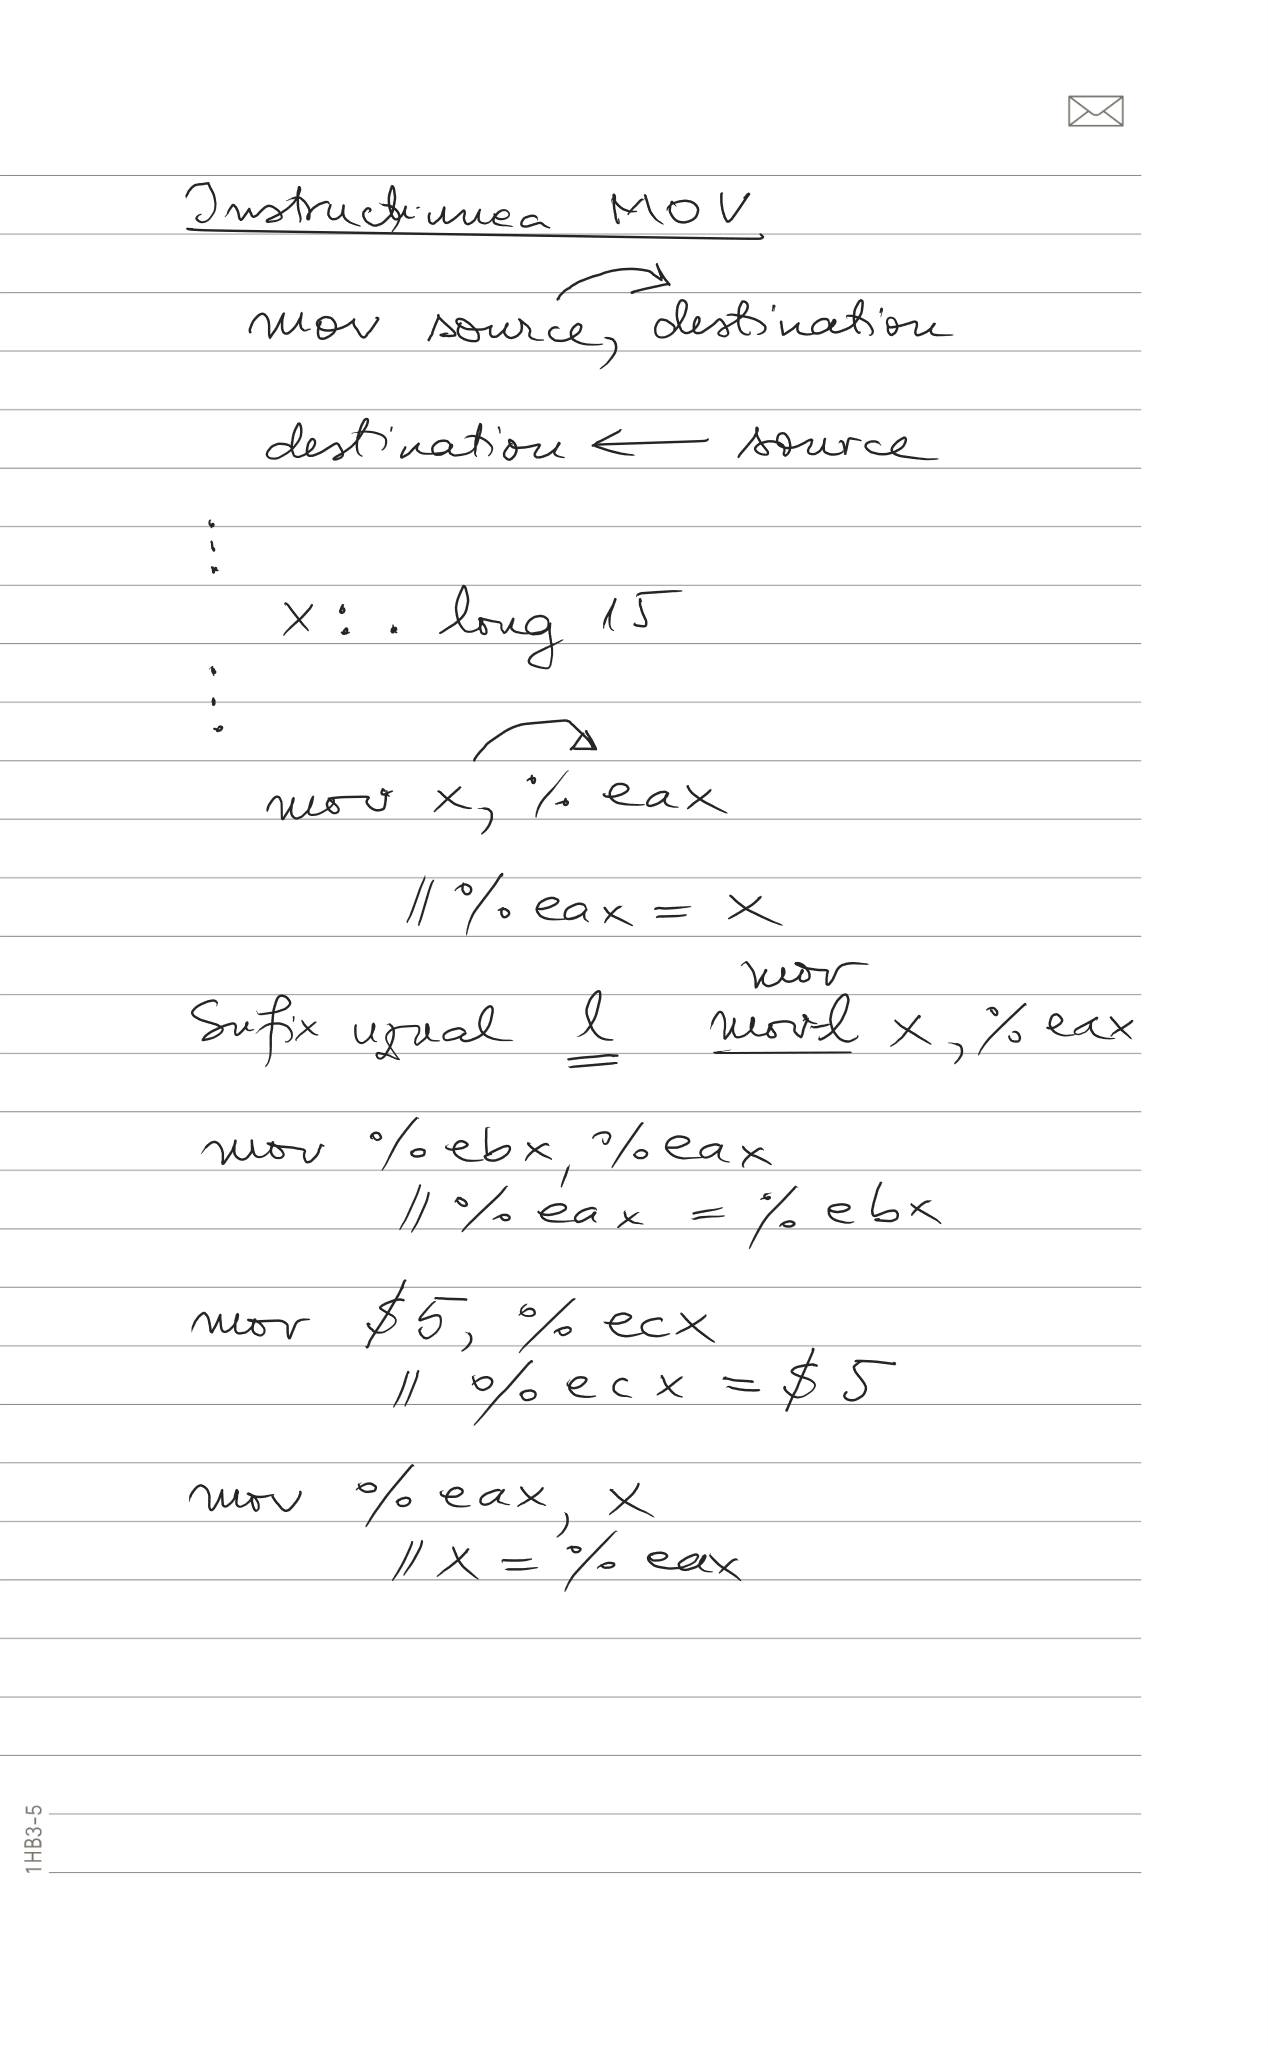 Instrucțiunea MOV
mov source, destination
destination ← source
x: .long 15
mov x, %eax
// %eax = x
mov
Sufix uzual l movl x, %eax
mov %ebx, %eax
// %eax = %ebx
mov $5, %ecx
// %ecx = $5
mov %eax, x
// x = %eax
1HB3-5